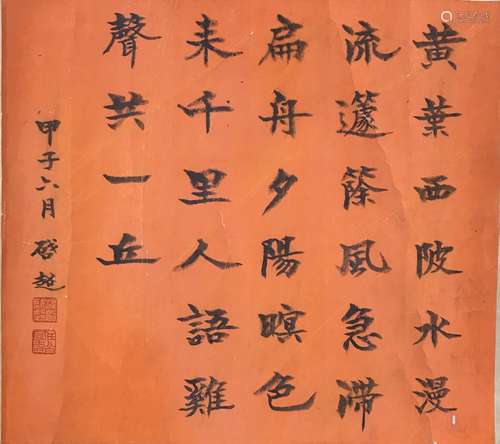 黄葉西陂水漫
流籧篨風急滯
扁舟夕陽暝色
来千里人語雞
聲共一丘
甲子六月啓超